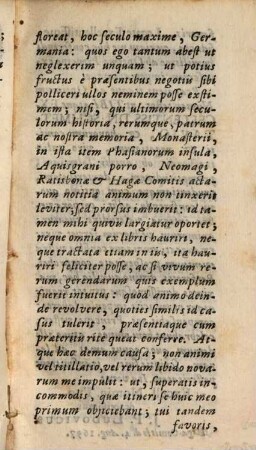 floreat, hoc seculo maxime, Ger-
mania: quos ego tantum abest ut
neglexerim unquam; ut potius
fructus è præsentibus negotiû sibi
polliceri ullos neminem posse exsti-
mem; nisi, qui ultimorum secu-
lorum historia, rerumque, patrum
ac nostra memoria, Monasterii,
in ista item Phasianorum insula,
Aquisgrani porro, Neomagi,
Ratisbonæ & Hagæ Comitis acta-
rum notitia animum non tinxerit
leviter, sed prorsus imbuerit: id ta-
men mihi quivû largiatur oportet;
neque omnia ex libris hauriri, ne-
que tractata etiam in iû, ita hau-
riri feliciter posse, ac si vivum re-
rum gerendarum quis exemplum
fuerit intuitus: quod animo dein-
de revolvere, quoties similis id ca-
sus tulerit, præsentiaque cum
præteritû rite queat conferre. At-
que hæc demum causa; non animi
vel titillatio, vel rerum libido nova-
rum me impulit: ut, superatis in-
commodis, quæ itineri se huic meo
primum objiciebant; tui tandem
favoris,